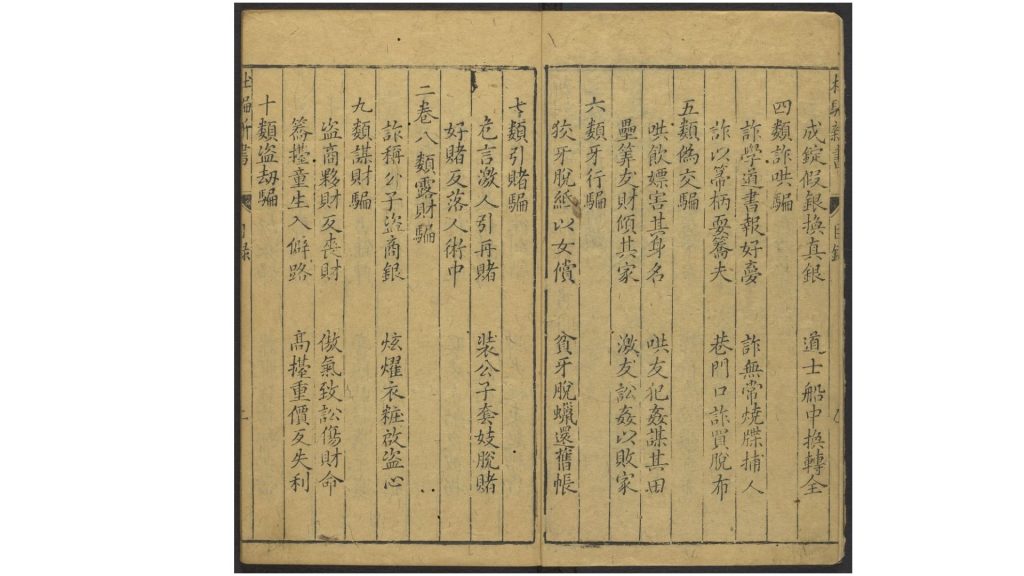 成錠假銀換真銀　道士船中換轉金
四類詐哄騙
詐學道書報好夢　詐無常燒牒捕人
詐以帚柄耍轎夫　巷門口詐買脫布
五類偽交騙
哄飲嫖害其身名　哄友犯姦謀其田
壘算友財傾其家　激友訟姦以敗家
六類牙行騙
狡牙脫紙以女償　貧牙脫蠟還舊帳
七類引賭騙
危言激人引再賭　裝公子套妓脫賭
好賭反落人術中
二卷八類露財騙
詐稱公子盜商銀　炫燿衣粧啟盜心
九類謀財騙
盜商夥財反喪財　傲氣致訟傷財命
轎擡童生入僻路　高擡重價反失利
十類盜劫騙